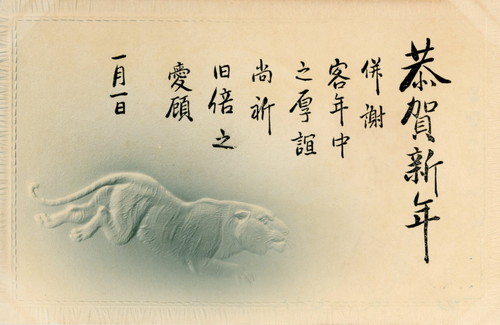 恭賀新年
併謝
客年中
之厚誼
尚祈
旧倍之
愛顧
一月一日